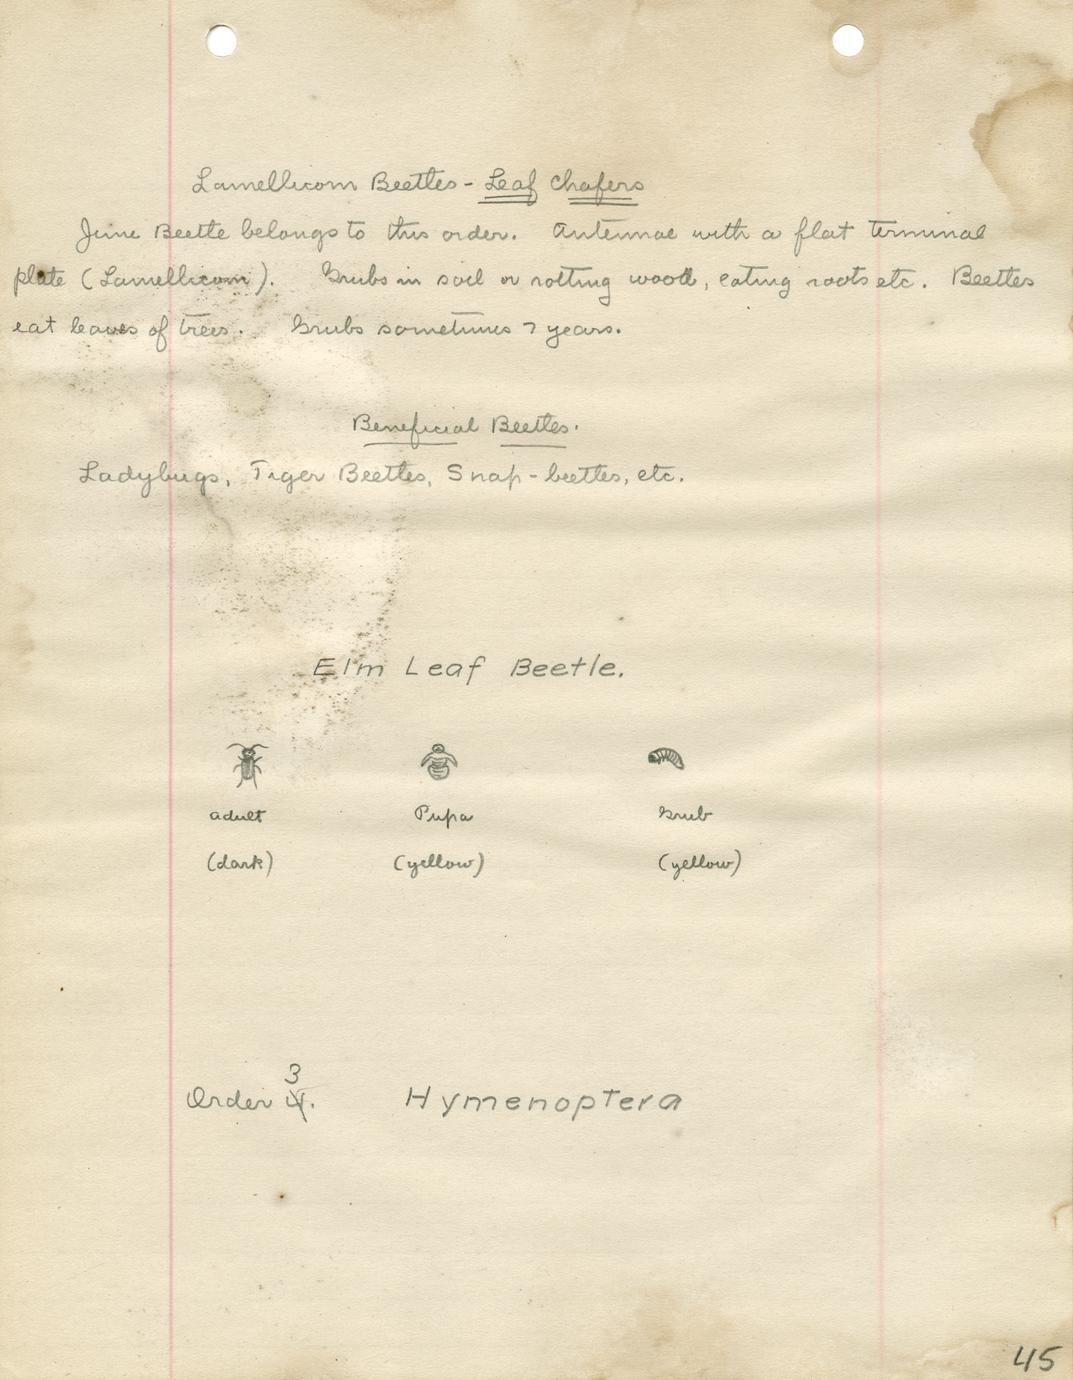 Lamellicorn Beetles - Leaf Chafers
June Beetle belongs to this order. Antennae with a flat terminal
plate (Lamellicorn). Grubs in soil or rotting wood, eating roots etc. Beetles
eat leaves of trees. Grubs sometimes 7 years.
Beneficial Beetles.
Ladybugs, Tiger Beetles, Snap-beetles, etc.
Elm Leaf Beetle.
adult Pupa Grub
(dark) (yellow) (yellow)
3
Order 4. Hymenoptera
45